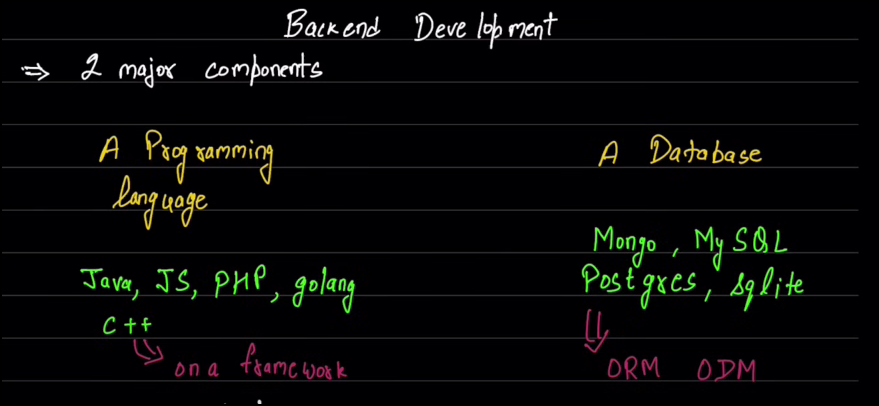 Backend Development
⇒ 2 major components
A Programming language
A Database
Java, JS, PHP, golang
C++
Mongo, MySQL
Postgres, sqlite
on a framework
ORM ODM